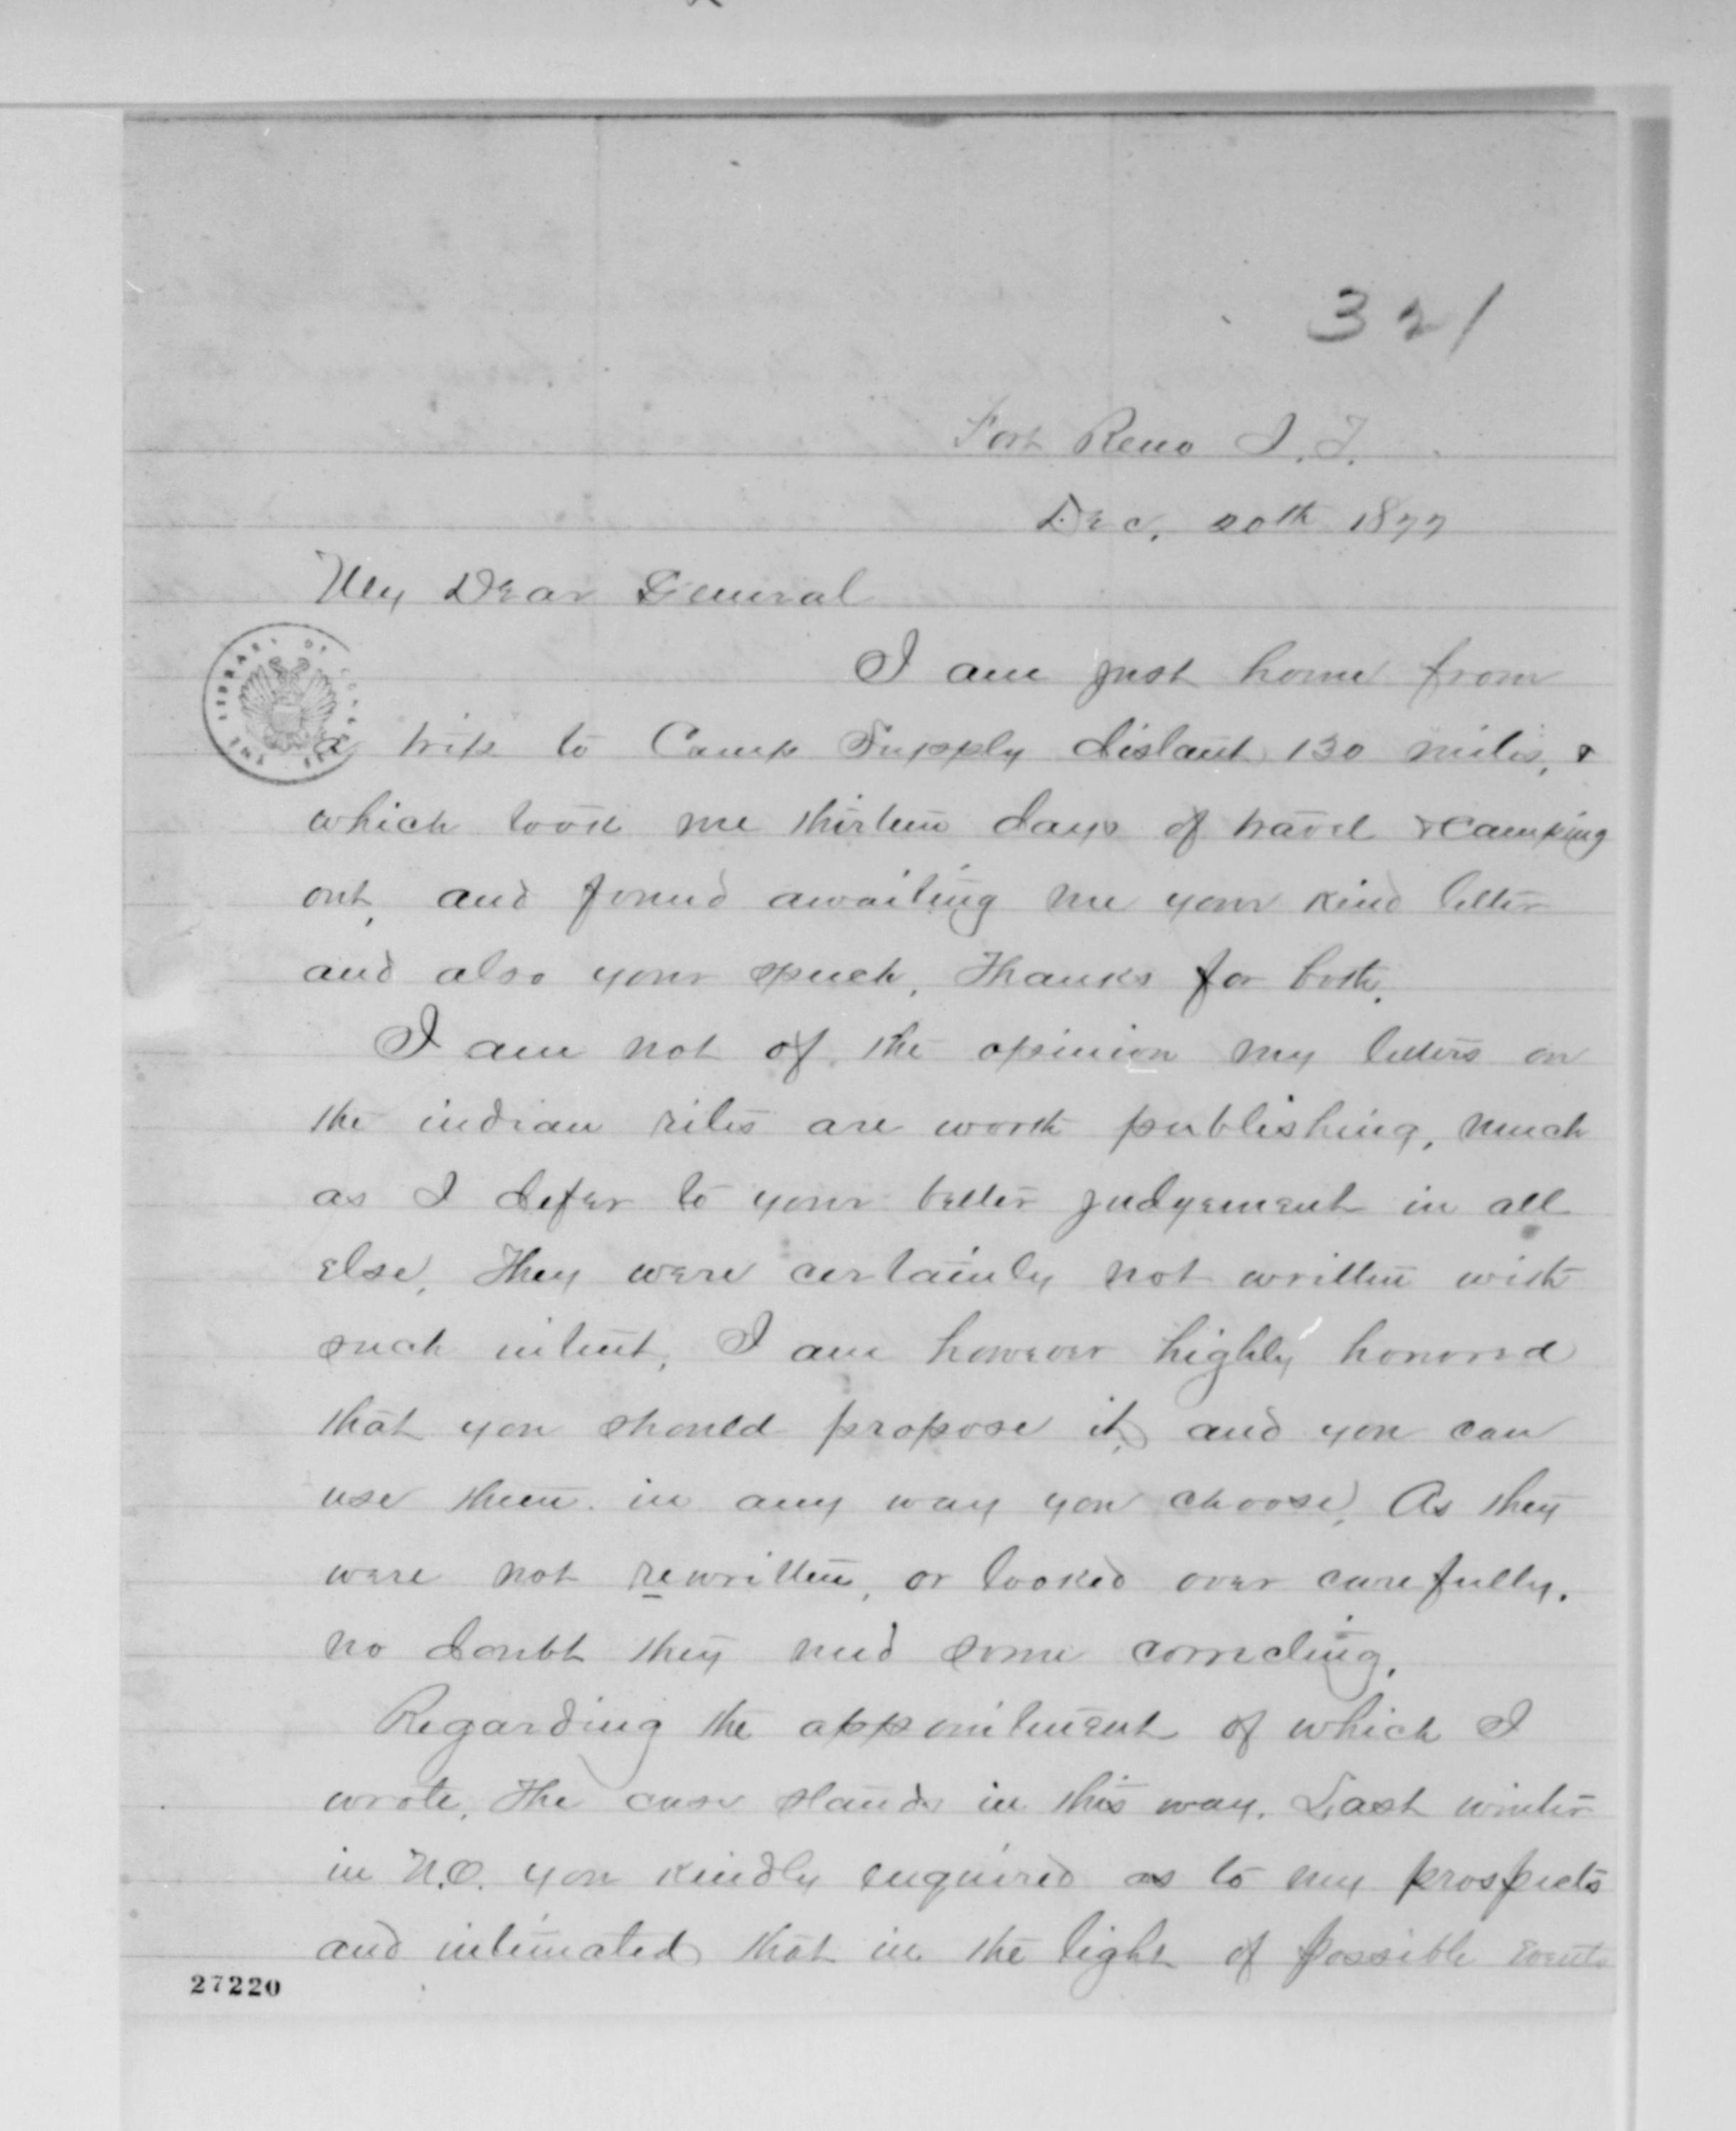 321
Fort Reno I.T.
Dec. 20th 1877
My Dear General
I am just home from
THE LIBRARY OF CONGRESS
a trip to Camp Supply distant 130 miles, &
which took me thirteen days of travel & camping
out, and found awaiting me your kind letter
and also your speech. Thanks for both.
I am not of the opinion my letters on
the indian rites are worth publishing, much
as I defer to your better judgement in all
else. They were certainly not written with
such intent. I am however highly honored
that you should propose it, and you can
use them in any way you choose. As they
were not rewritten, or looked over carefully.
no doubt they need some correcting.
Regarding the appointment of which I
wrote. The case stands in this way. Last winter
in N.O. you kindly enquired as to my prospects
and intimated that in the light of possible events
27220